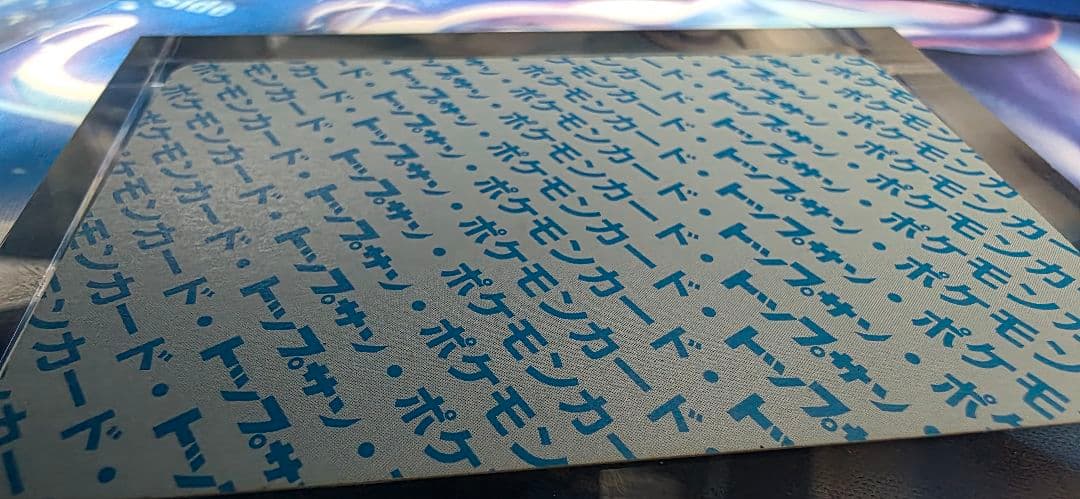 ンカー
モンカード・
モンカード・トッ
ケモンカード・トップサ
ポケモンカード・トップサン・ポケ
ポケモンカード・トップサン・ポケモン
モンカード・トップサン・ポケモンカー
カード・トップサン・ポケモンカード・
ド・トップサン・ポケモンカード・トップ
・トップサン・ポケモンカード・トップサン
トップサン・ポケモンカード・トップサン・ポ
プサン・ポケモンカード・トップサン・ポケモ
サン・ポケモンカード・トップサン・ポケモン
ポケモンカード・トップサン・ポケモンカ
ケモンカード・トップサン・ポケモンカー